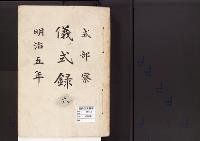 式部寮
儀式録 六
明治五年